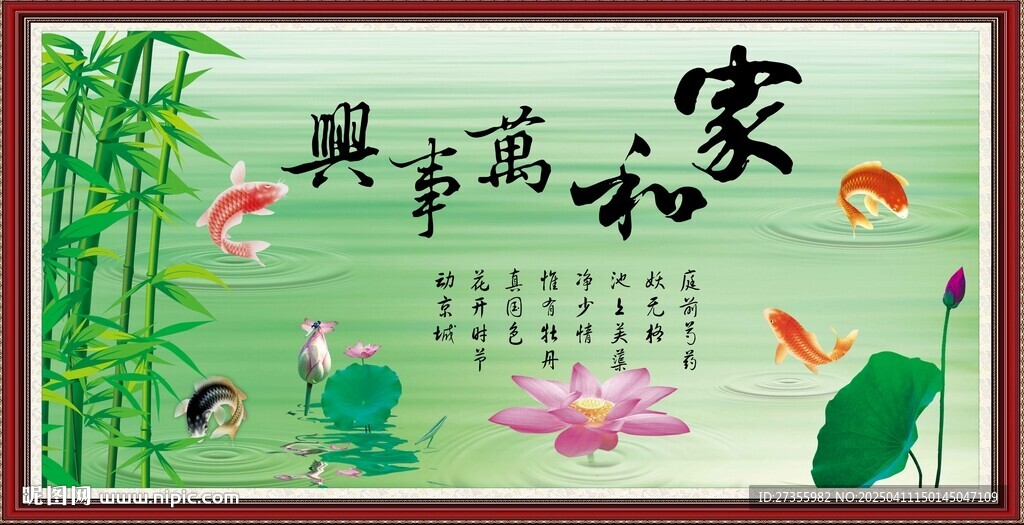 家和萬事興
庭前芍药
妖无格
池上芙蕖
净少情
惟有牡丹
真国色
花开时节
动京城
昵图网 www.nipic.com
ID:27355982 NO:20250411150145047109